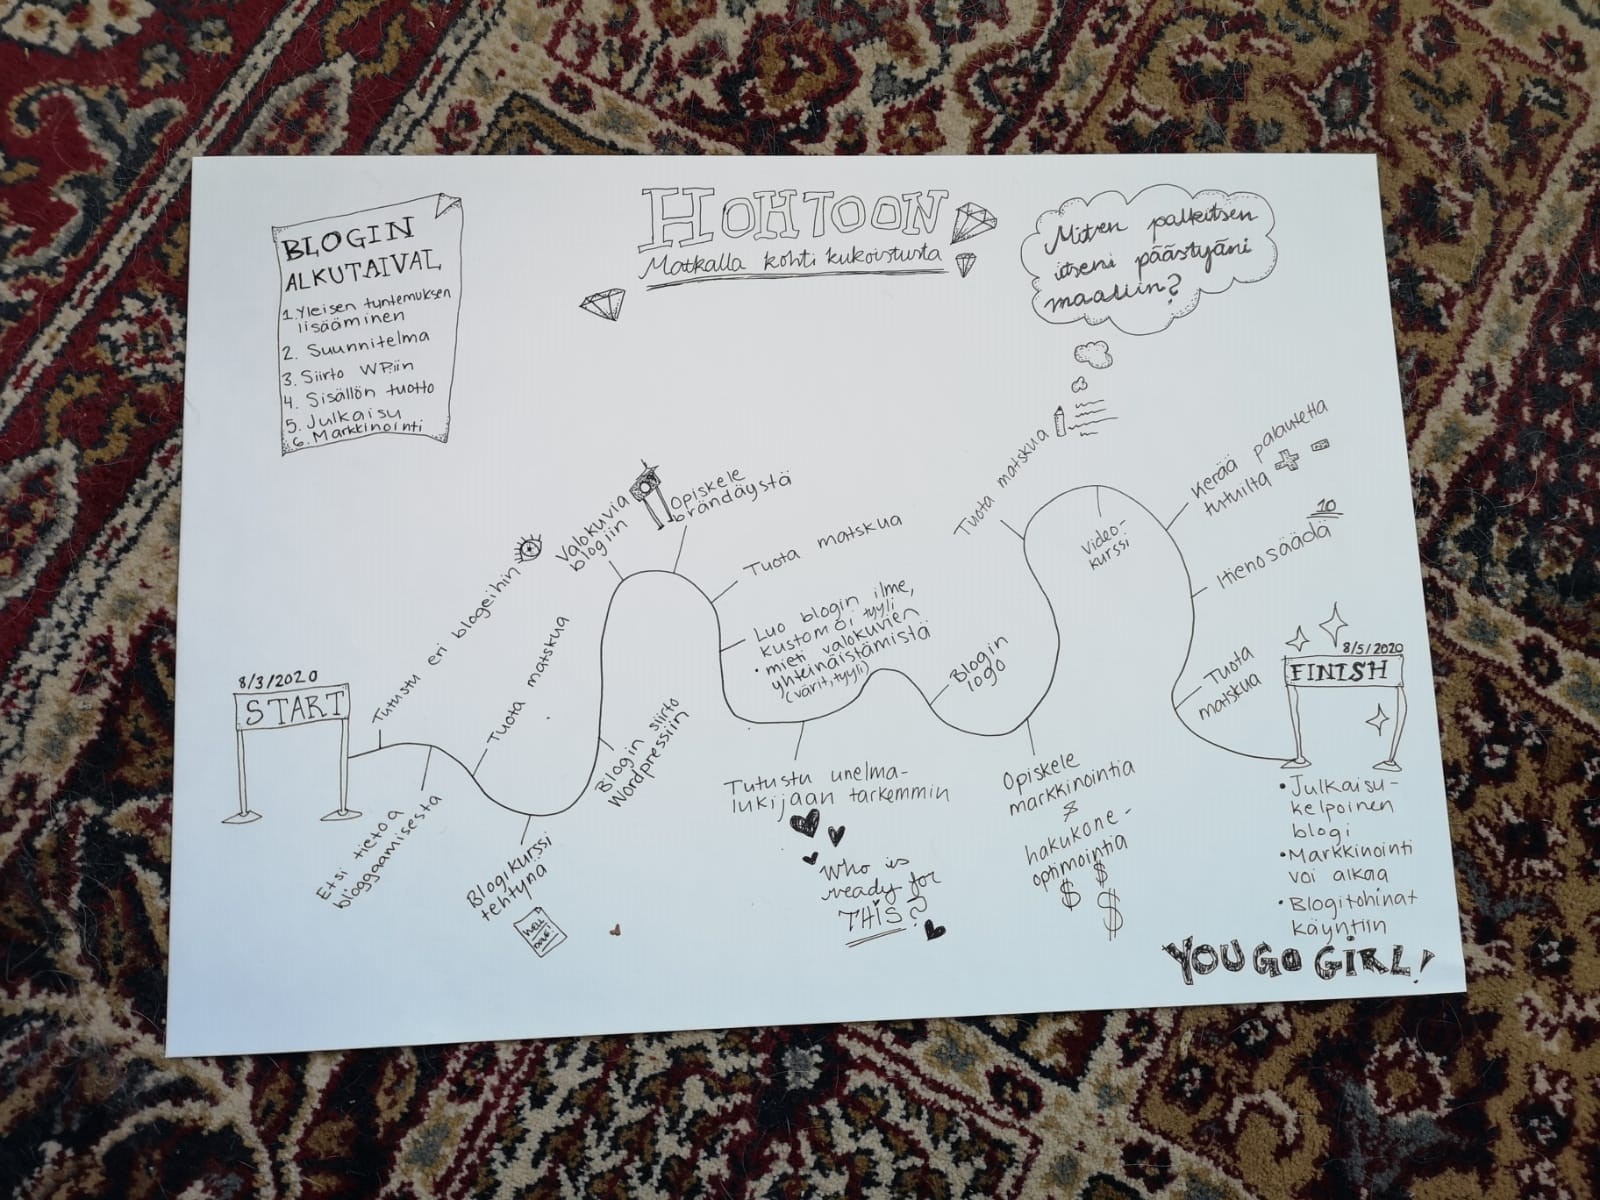 HOHTOON
Matkalla kohti kukoistusta
BLOGIN
ALKUTAIVAL
1. Yleisen tuntemuksen
lisääminen
2. Suunnitelma
3. Siirto WP:iin
4. Sisällön tuotto
5. Julkaisu
6. Markkinointi
Miten palkitsen
itseni päästyäni
maaliin?
8/3/2020
START
Tutustu eri blogeihin
Etsi tietoa
bloggaamisesta
Tuota matskua
Blogikurssi
tehtynä
WELL
DONE!
Blogin siirto
Wordpressiin
Valokuvia
blogiin
Opiskele
brändäystä
Tuota matskua
Luo blogin ilme,
kustomoi tyyli
• mieti valokuvien
yhtenäistämistä
(värit, tyyli)
Tutustu unelma-
lukijaan tarkemmin
Who is
ready for
THIS?
Blogin
logo
Opiskele
markkinointia
&
hakukone-
optimointia
$ $ $
Tuota matskua
Video-
kurssi
Kerää palautetta
tutuilta + -
10
Hienosäädä
Tuota
matskua
8/5/2020
FINISH
• Julkaisu-
kelpoinen
blogi
• Markkinointi
voi alkaa
• Blogitohinat
käyntiin
YOU GO GIRL!